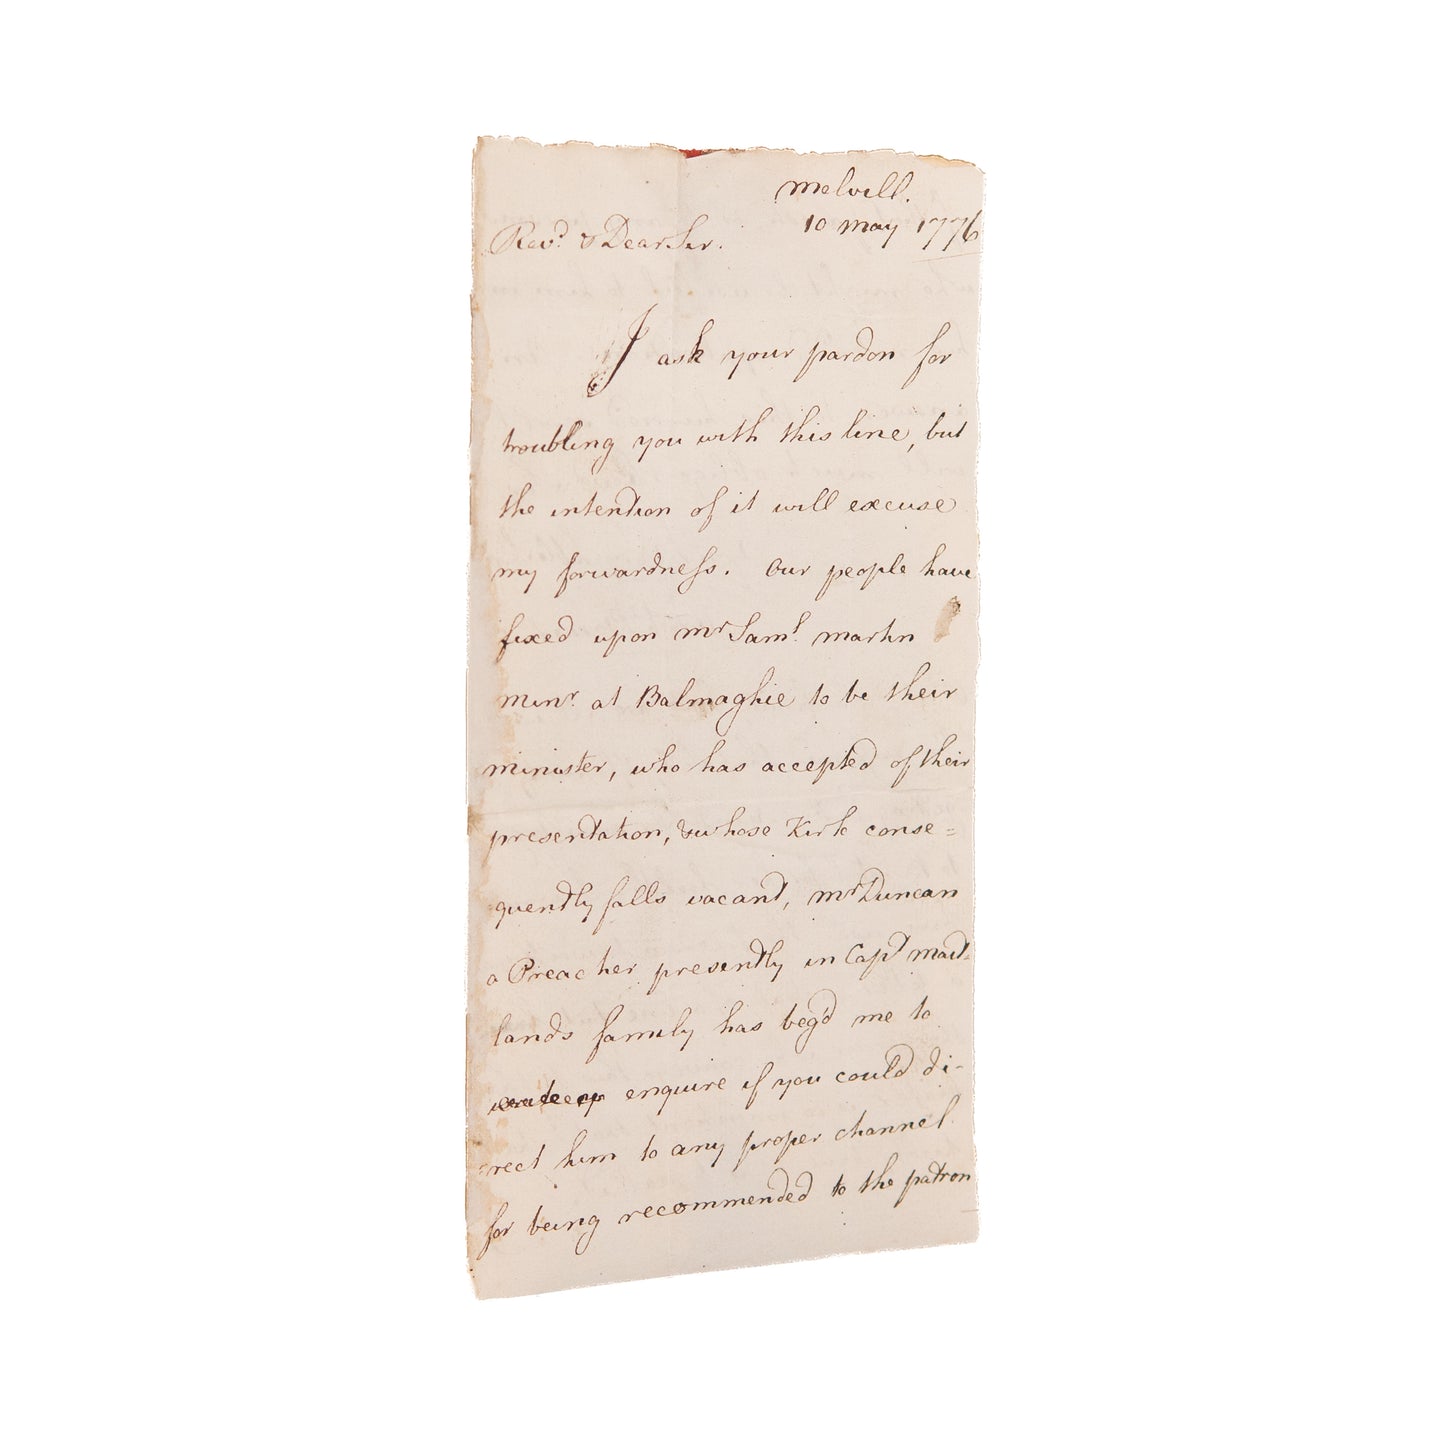 Melvill.
10 May 1776
Revd. & Dear Sir.
I ask your pardon for
troubling you with this line, but
the intention of it will excuse
my forwardness. Our people have
fixed upon Mr Saml. Martin
Minr. at Balmaghie to be their
minister, who has accepted of their
presentation, & whose Kirk conse=
quently falls vacant, Mr Duncan
a Preacher presently in Capt Mait=
lands family has beg'd me to
enquire if you could di-
=rect him to any proper channel
for being recommended to the patron